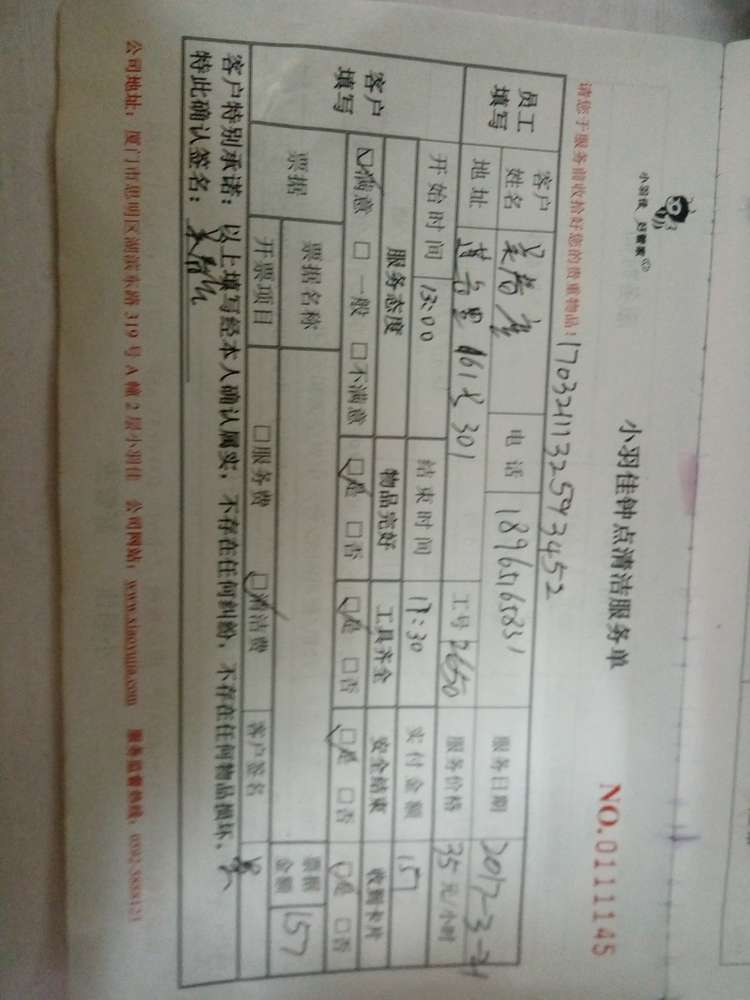 小羽佳钟点清洁服务单
小羽佳 好管家
NO.0111145
请您于服务前收拾好您的贵重物品!
170321132593452
员工填写 客户姓名 电话 18965165831 服务日期 2017-3-21
地址 161号301 工号 2650 服务价格 35元/小时
客户填写 开始时间 13:00 结束时间 17:30 实付金额 157
服务态度 物品完好 工具齐全 安全结束 收到卡片
☑满意 □一般 □不满意 ☑是 □否 ☑是 □否 ☑是 □否 ☑是 □否
票据 票据名称 票据金额 157
开票项目 □服务费 ☑清洁费 客户签名
客户特别承诺:以上填写经本人确认属实,不存在任何纠纷,不存在任何物品损坏,
特此确认签名:
公司地址:厦门市思明区湖滨东路319号A幢2层小羽佳 公司网站:www.xiaoyujia.com 服务监督热线:0592-5888123